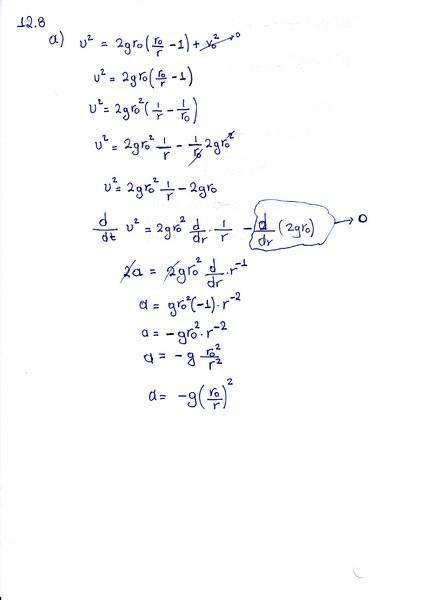 12.8
a) v² = 2gr₀(r₀/r - 1) + v₀² → 0
v² = 2gr₀(r₀/r - 1)
v² = 2gr₀²(1/r - 1/r₀)
v² = 2gr₀² 1/r - 1/r₀ 2gr₀²
v² = 2gr₀² 1/r - 2gr₀
d/dt v² = 2gr₀² d/dr · 1/r - d/dr (2gr₀) → 0
2a = 2gr₀² d/dr · r⁻¹
a = gr₀²(-1) · r⁻²
a = -gr₀² · r⁻²
a = -g r₀²/r²
a = -g(r₀/r)²